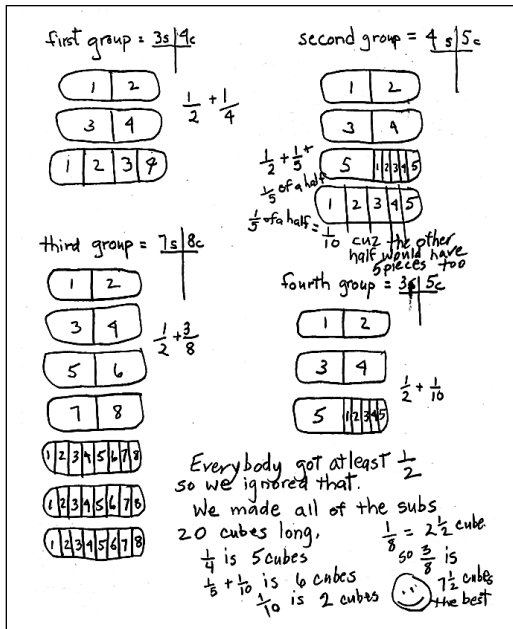 first group = 3s | 4c
1 2
3 4
1 2 3 4
1/2 + 1/4
second group = 4 s | 5c
1 2
3 4
5 1 2 3 4 5
1 2 3 4 5
1/2 + 1/5 +
1/5 of a half
1/5 of a half = 1/10 cuz the other
half would have
5 pieces too
third group = 7s | 8c
1 2
3 4
5 6
7 8
1 2 3 4 5 6 7 8
1 2 3 4 5 6 7 8
1 2 3 4 5 6 7 8
1/2 + 3/8
fourth group = 3s | 5c
1 2
3 4
5 1 2 3 4 5
1/2 + 1/10
Everybody got atleast 1/2
so we ignored that.
We made all of the subs
20 cubes long.
1/4 is 5 cubes
1/5 + 1/10 is 6 cubes
1/10 is 2 cubes
1/8 = 2 1/2 cube.
so 3/8 is
7 1/2 cubes
the best